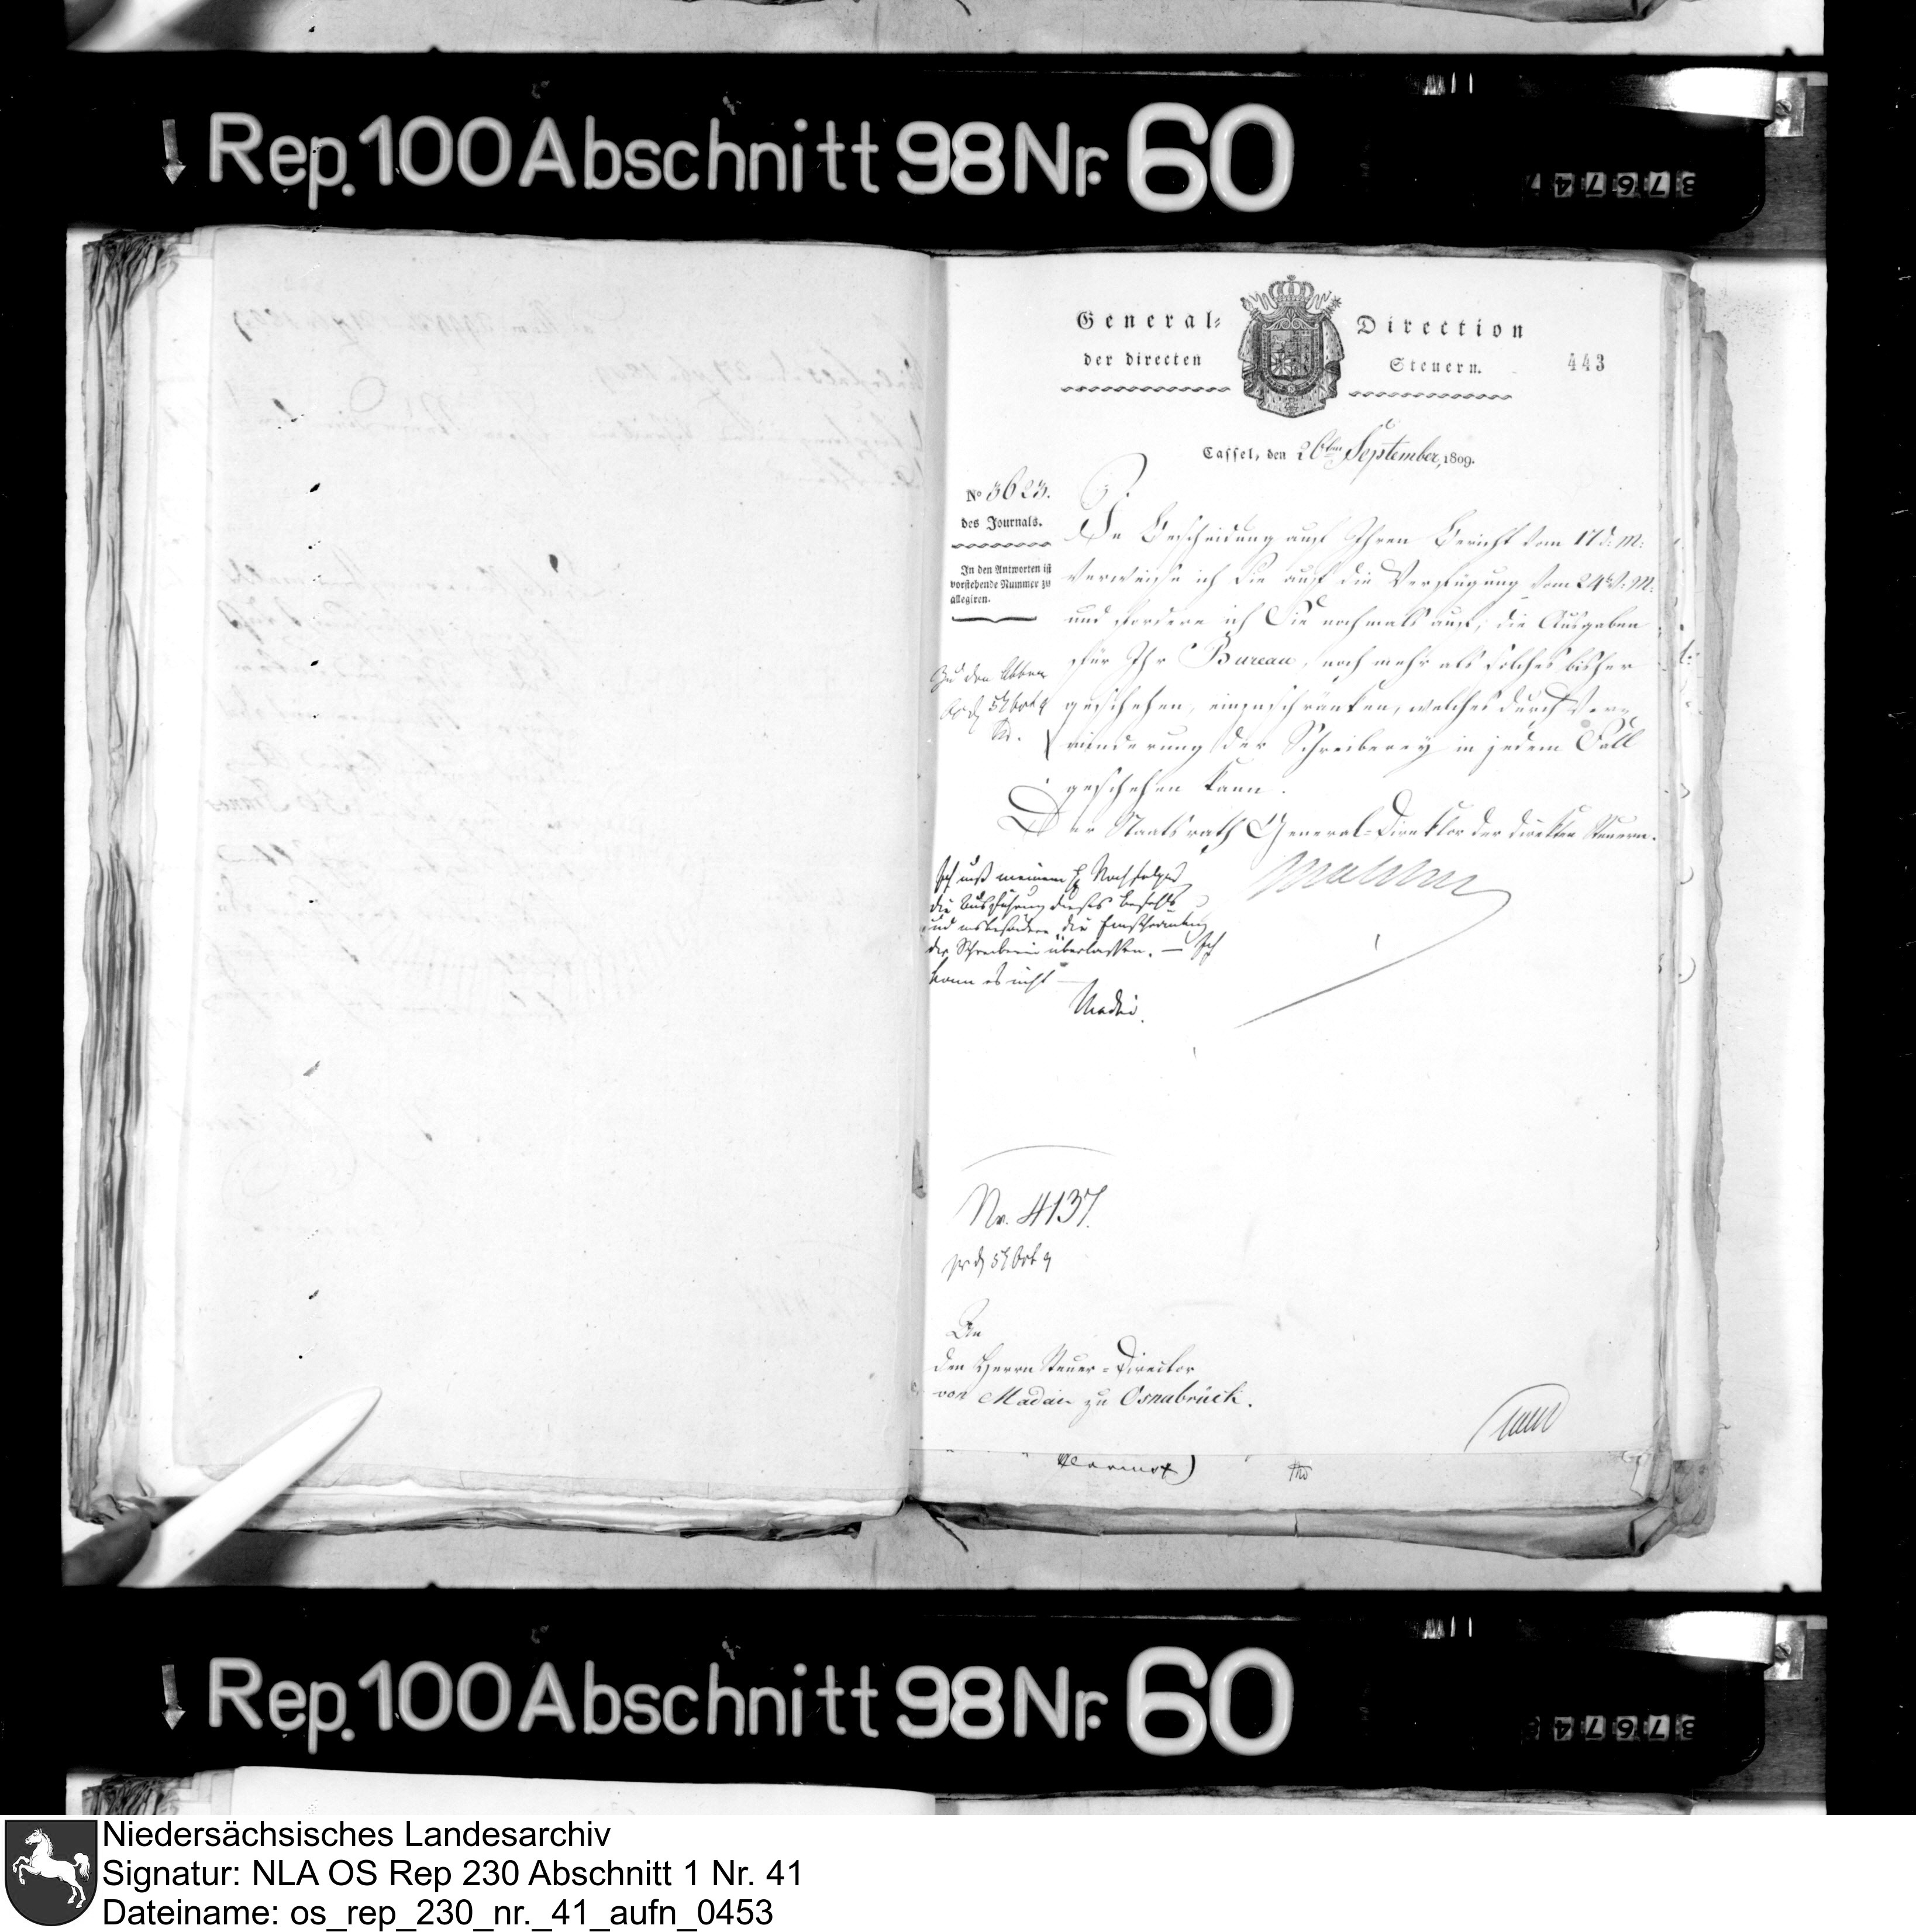 Rep. 100 Abschnitt 98 Nr. 60
General-Direction
der directen Steuern.
443
Cassel, den 26ten September, 1809.
No 3623.
des Journals.
In den Antworten ist
vorstehende Nummer zu
allegiren.
In Bescheidung auf Ihren Bericht vom 17 d. M.
verweise ich Sie auf die Verfügung vom 24t v. M.
und fordere ich Sie nochmals auf, die Ausgaben
für Ihr Bureau, noch mehr als solches bisher
geschehen, einzuschränken, welches durch Ver-
minderung der Schreiberey in jedem Fall
geschehen kann.
Der Staatsrath General-Direktor der direkten Steuern.
Zu den Akten
5t Oct 9
Ich muß meinem H Nachfolger
die Ausführung dieses Befehls
und insbesondere die Einschränkung
der Schreiberei überlassen. — Ich
kann es nicht —
Madai.
Nr. 4137.
pr d 5t Oct 9
An
den Herrn Steuer-Director
von Madai zu Osnabrück.
Rep. 100 Abschnitt 98 Nr. 60
Niedersächsisches Landesarchiv
Signatur: NLA OS Rep 230 Abschnitt 1 Nr. 41
Dateiname: os_rep_230_nr._41_aufn_0453